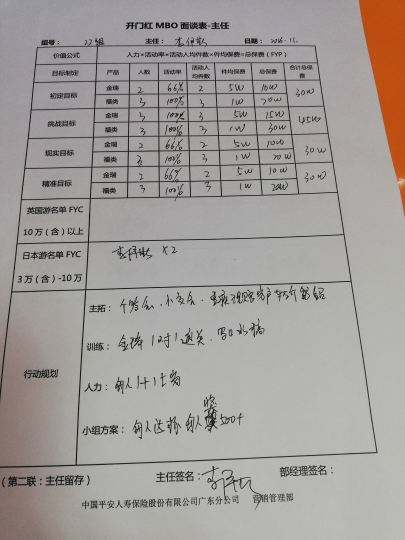 开门红 MBO 面谈表-主任
组号： 27组 主任： 日期：
价值公式 人力×活动率×活动人均件数×件均保费=总保费（FYP）
目标制定 产品 人数 活动率 活动人均件数 件均保费 总保费 合计总保费
初定目标 金瑞 2 66% 2 5W 10W 30W
福类 3 100% 3 1W 20W
挑战目标 金瑞 3 100% 3 5W 15W 45W
福类 3 100% 3 1W 30W
现实目标 金瑞 2 66% 2 5W 10W 30W
福类 3 100% 3 1W 20W
精准目标 金瑞 2 66% 2 5W 10W 30W
福类 3 100% 3 1W 20W
英国游名单 FYC
10 万（含）以上
日本游名单 FYC
3 万（含）-10万
X2
行动规划
主拓：
训练： 金瑞 1对1通关、
人力： 每人1+1
小组方案： 每人达标 500+
（第二联：主任留存） 主任签名： 部经理签名：
中国平安人寿保险股份有限公司广东分公司 营销管理部